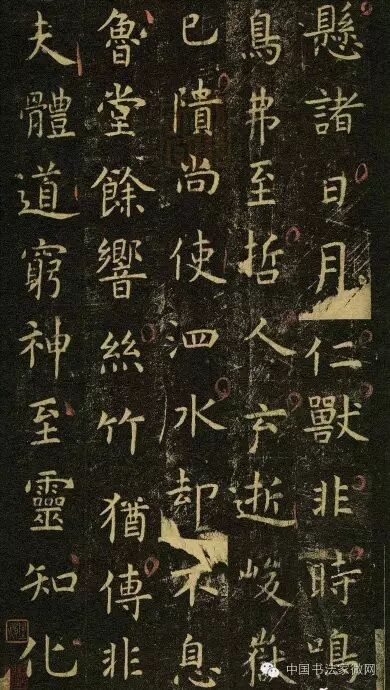 懸諸日月仁獸非時鳴
鳥弗至哲人云逝峻嶽
已隤尚使泗水却不息
魯堂餘響絲竹猶傳非
夫體道窮神至靈知化
中国书法家微网